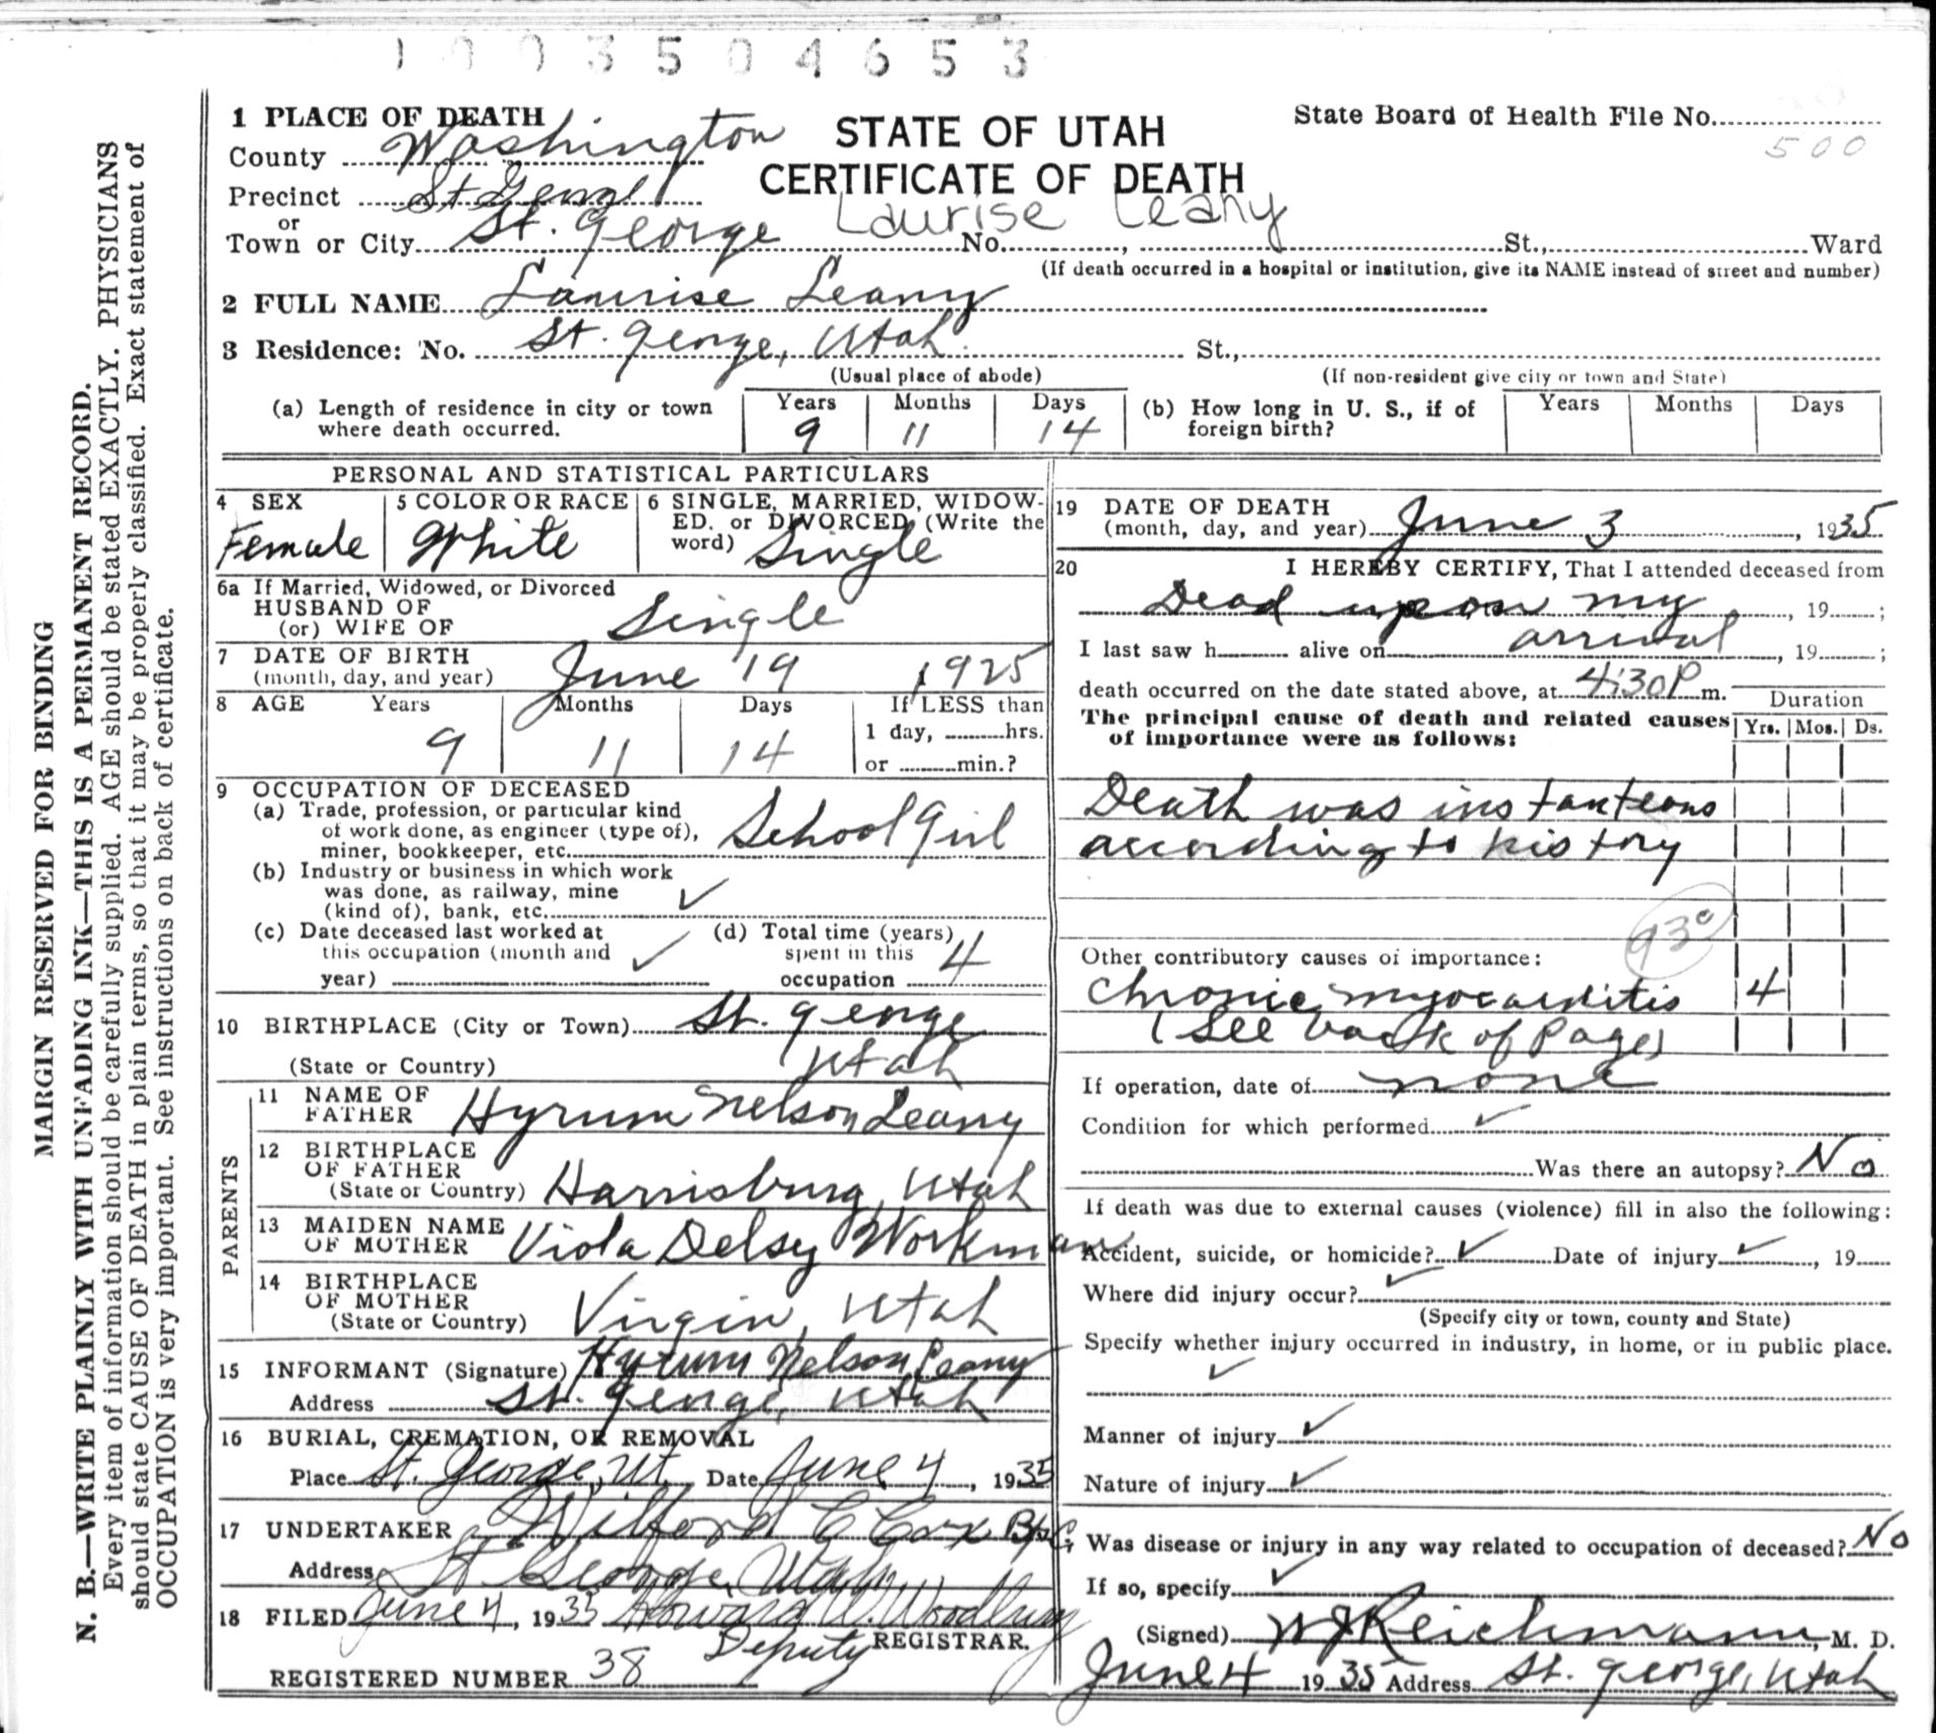 1003504653
1 PLACE OF DEATH
STATE OF UTAH
CERTIFICATE OF DEATH
State Board of Health File No.
500
County Washington
Precinct St George
or
Town or City St. George No. , St., Ward
Laurise Leany
(If death occurred in a hospital or institution, give its NAME instead of street and number)
2 FULL NAME Laurise Leany
3 Residence: No. St. George, Utah. St.,
(Usual place of abode) (If non-resident give city or town and State)
(a) Length of residence in city or town where death occurred.
Years 9 Months 11 Days 14
(b) How long in U. S., if of foreign birth?
Years Months Days
PERSONAL AND STATISTICAL PARTICULARS
4 SEX Female
5 COLOR OR RACE White
6 SINGLE, MARRIED, WIDOW-
ED, or DIVORCED (Write the
word) Single
6a If Married, Widowed, or Divorced
HUSBAND OF
(or) WIFE OF Single
7 DATE OF BIRTH
(month, day, and year) June 19 1925
8 AGE Years Months Days If LESS than
9 11 14 1 day, hrs.
or min.?
9 OCCUPATION OF DECEASED
(a) Trade, profession, or particular kind
of work done, as engineer (type of),
miner, bookkeeper, etc. School Girl
(b) Industry or business in which work
was done, as railway, mine
(kind of), bank, etc. ✓
(c) Date deceased last worked at
this occupation (month and
year) ✓
(d) Total time (years)
spent in this
occupation 4
10 BIRTHPLACE (City or Town) St. George
(State or Country) Utah
PARENTS
11 NAME OF
FATHER Hyrum Nelson Leany
12 BIRTHPLACE
OF FATHER
(State or Country) Harrisburg, Utah
13 MAIDEN NAME
OF MOTHER Viola Delsey Workman
14 BIRTHPLACE
OF MOTHER
(State or Country) Virgin, Utah
15 INFORMANT (Signature) Hyrum Nelson Leany
Address St. George, Utah
16 BURIAL, CREMATION, OR REMOVAL
Place St. George, Ut. Date June 4, 1935
17 UNDERTAKER Wilford C Cox
Address St George, Utah
18 FILED June 4, 1935 Howard W. Woodbury
Deputy REGISTRAR.
REGISTERED NUMBER 38
19 DATE OF DEATH
(month, day, and year) June 3, 1935
20 I HEREBY CERTIFY, That I attended deceased from
Dead upon my, 19 ;
I last saw h alive on arrival, 19 ;
death occurred on the date stated above, at 4:30 P m.
Duration
The principal cause of death and related causes
of importance were as follows:
Yrs. Mos. Ds.
Death was instanteous
according to history
Other contributory causes of importance:
Chronic myocarditis 4
(See back of Page)
If operation, date of none
Condition for which performed ✓
Was there an autopsy? No
If death was due to external causes (violence) fill in also the following:
Accident, suicide, or homicide? ✓ Date of injury ✓, 19
Where did injury occur? ✓
(Specify city or town, county and State)
Specify whether injury occurred in industry, in home, or in public place.
✓
Manner of injury ✓
Nature of injury ✓
Was disease or injury in any way related to occupation of deceased? No
If so, specify ✓
(Signed) W J Reichmann, M. D.
June 4 1935 Address St. George, Utah
MARGIN RESERVED FOR BINDING
N. B.—WRITE PLAINLY WITH UNFADING INK—THIS IS A PERMANENT RECORD.
Every item of information should be carefully supplied. AGE should be stated EXACTLY. PHYSICIANS
should state CAUSE OF DEATH in plain terms, so that it may be properly classified. Exact statement of
OCCUPATION is very important. See instructions on back of certificate.